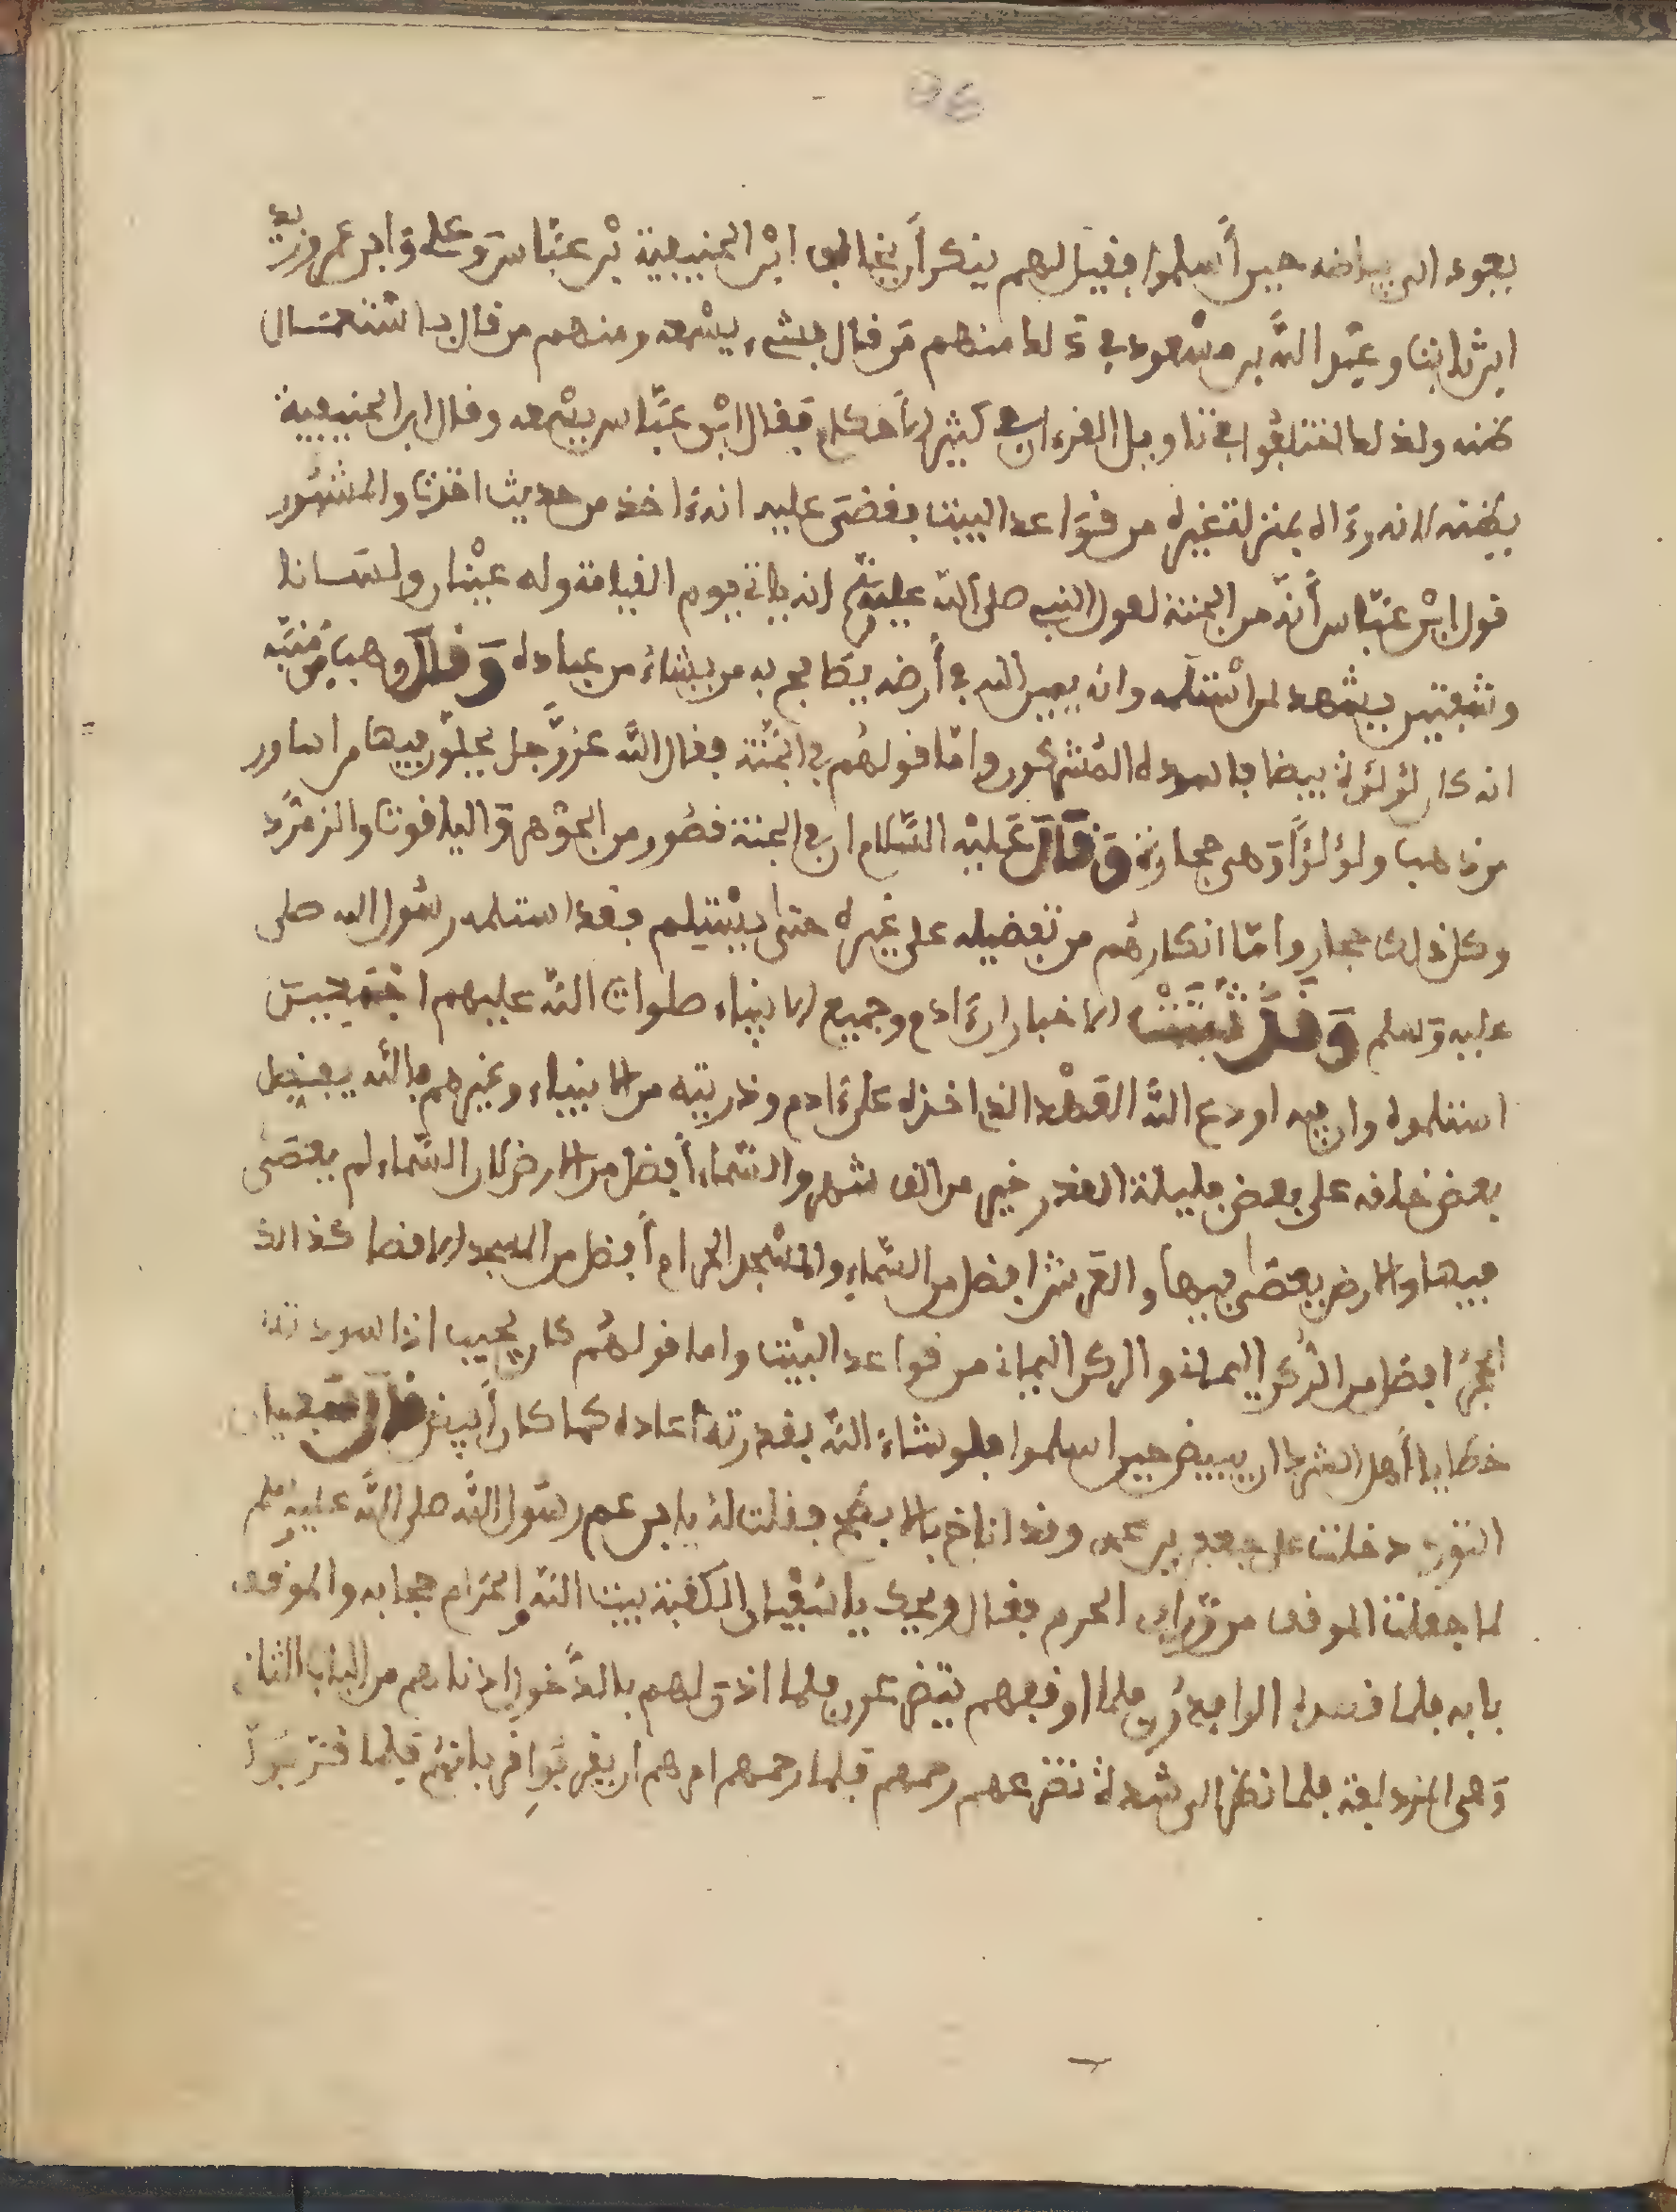 يعود الى بياضه حين أسلموا فقيل لهم ينكر أن يخالف ابْن الحنيفية بْن عبّاس وعلي وابن عمر وزيد
ابن ثابت وعبْد اللّه بن مسْعود في ذلك منهم من قال بشيء يسْمعه ومنهم من قال باستعمال
ظنه ولذلك اختلفوا في تاويل القرءان في كثير الأحكام فقال ابْن عبّاس بسْمعه وقال ابن الحنيفية
بظنه لانه رءاه بمنزلة غيره من قواعد البيت فقضى عليه انه اخذ من حديث اخذت والمشهور
قول ابْن عبّاس أنّه من الجنة لقول النبي صلى اللّه عليه وسلم انه ياتي يوم القيامة وله عيْنان ولسانا
وشفتين يشهد لمن اسْتلمه وانه يمين اللّه في أرضه يصافح به من يشاء من عباده وقال وهب بن منبّه
انه كان لؤلؤة بيضا فاسوده المشركون وامّا قولهم في الجنّة فقال اللّه عزّ وجل يحلّون فيها من اساور
من ذهب ولؤلؤاً وهي حجارة وقال عليْه السّلام ان في الجنة قصور من الجوْهر والياقوت والزمرّد
وكل ذلك حجار وامّا انكارهم من تفضيله على غيره حتى يسْتلم فقد استلمه رسُول اللّه صلى
عليه وسلم وقد ثبتت الاخبار ان ءادم وجميع الانبياء صلوات اللّه عليهم اجمعين
استلموه وان فيه اودع اللّه العهْد الذي اخذه على ءادم وذريته من الانبياء وغيرهم فاللّه يفضل
بعض خلقه على بعض فليلة القدر خير من الف شهر والسّماء أفضل من الارض لان السّماء لم يعصَى
فيها والارض يعصَى فيها والعرش افضل من السّماء والمسْجد الحرام أفضل من المسجد الاقصا كذالك
الحجرُ افضل من الرُّكن اليماني والركن اليماني من قواعد البيْت واما قولهُم كان يجيب اذا سودته
خطايا أهل الشرك ان يبيض حين اسلموا فلو شاء اللّه بقدرته أعاده كما كان أبيض قال سفيان
الثوري دخلت على جعفر بن محمد وقد اناخ بالابطح فقلت لهُ يابن عم رسُول اللّه صلى اللّه عليه وسلم
لما جعلت الموقف من وراء الحرم فقال ويحك يا سُفْيان الكعْبة بيت اللّه والحرَام حجابه والموقف
بابه فلما قصده الوافدُون فلما اوقفهم يتضرعون فلما اذن لهم بالدّخول ادناهم من الباب الثاني
وهي المزدلفة فلما نظر الى شدة تضرعهم رحمهم فلما رحمهم امرهم ان يقربُوا قربانهُم فلما قربُوا